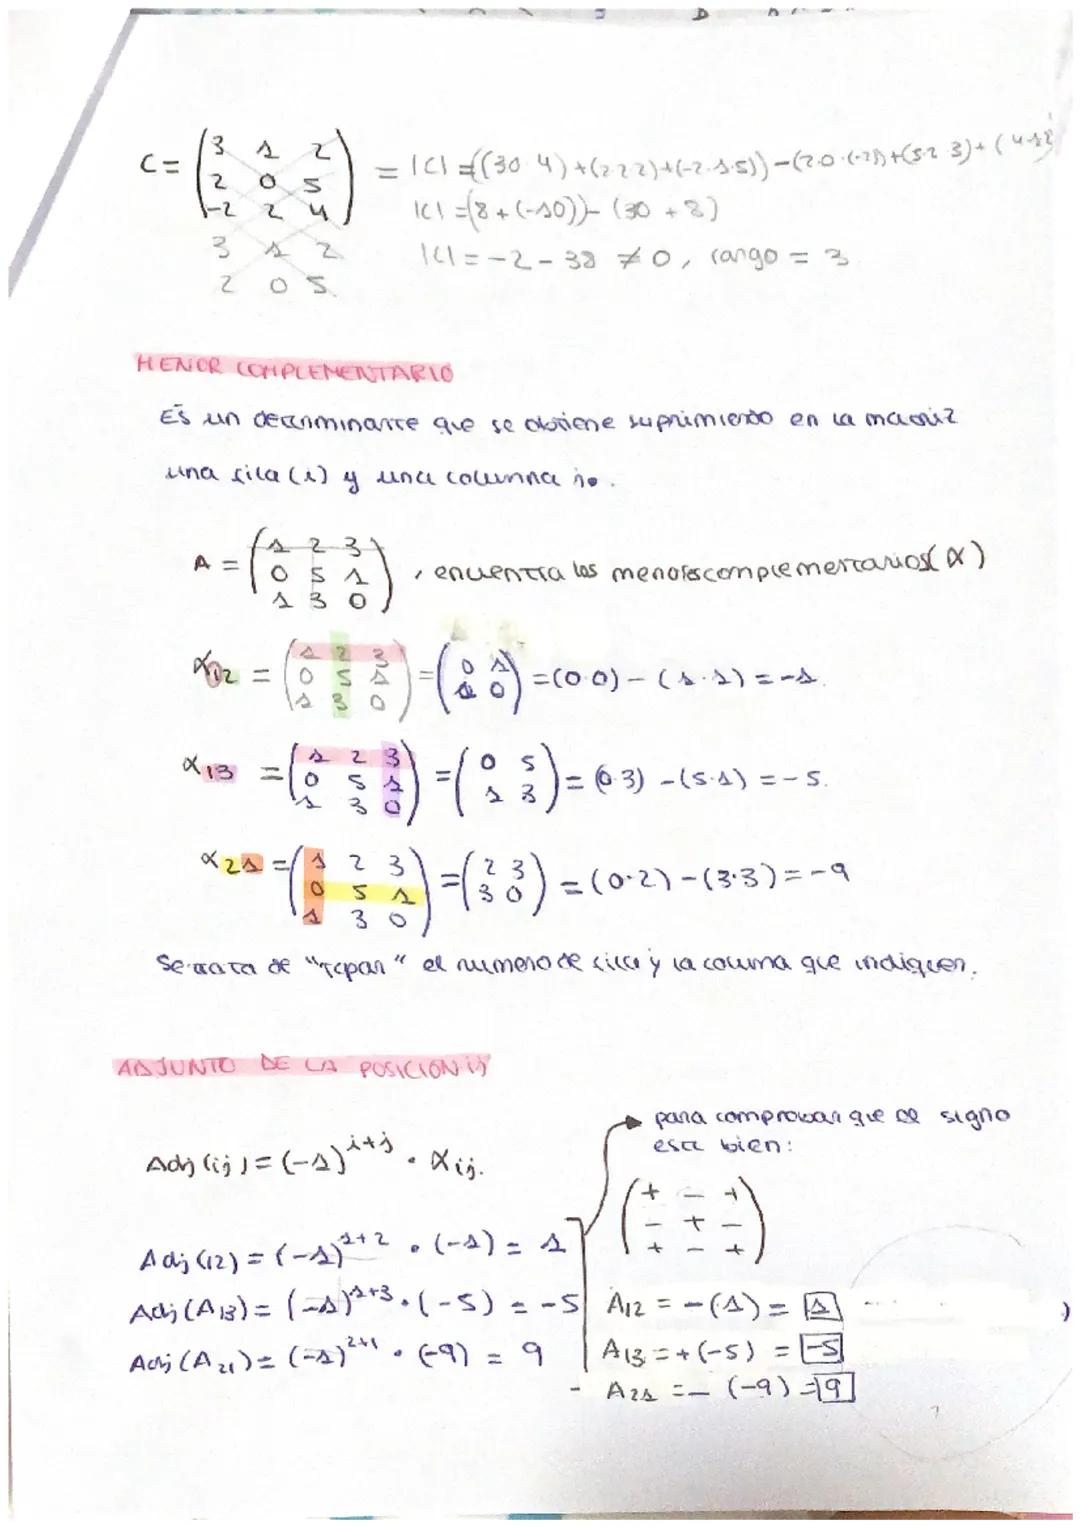 C = (3 1 2 / 2 0 5 / -2 2 4) = |C| = ((3·0·4)+(2·2·2)+(-2·1·5))-(2·0·(-2))+(5·2·3)+(4·1·2)
3 1 2
2 0 5
|C| = (8+(-10))-(30+8)
|C| = -2-38 ≠ 0, rango = 3
MENOR COMPLEMENTARIO
Es un determinante que se obtiene suprimiendo en la matriz
una fila (i) y una columna j.
A = (1 2 3 / 0 5 1 / 1 3 0), encuentra los menores complementarios (α)
α12 = (1 2 3 / 0 5 1 / 1 3 0) = (0 1 / 1 0) = (0·0)-(1·1) = -1.
α13 = (1 2 3 / 0 5 1 / 1 3 0) = (0 5 / 1 3) = (0·3)-(5·1) = -5.
α21 = (1 2 3 / 0 5 1 / 1 3 0) = (2 3 / 3 0) = (0·2)-(3·3) = -9
Se trata de "tapar" el numero de fila y la columna que indiquen.
ADJUNTO DE LA POSICION ij
Adj (ij) = (-1)^i+j · αij.
Adj (12) = (-1)^1+2 · (-1) = 1
Adj (A13) = (-1)^1+3 · (-5) = -5
Adj (A21) = (-1)^2+1 · (-9) = 9
para comprobar que el signo
esta bien:
(+ - + / - + - / + - +)
A12 = -(1) = 1
A13 = +(-5) = -5
- A21 = -(-9) = 9